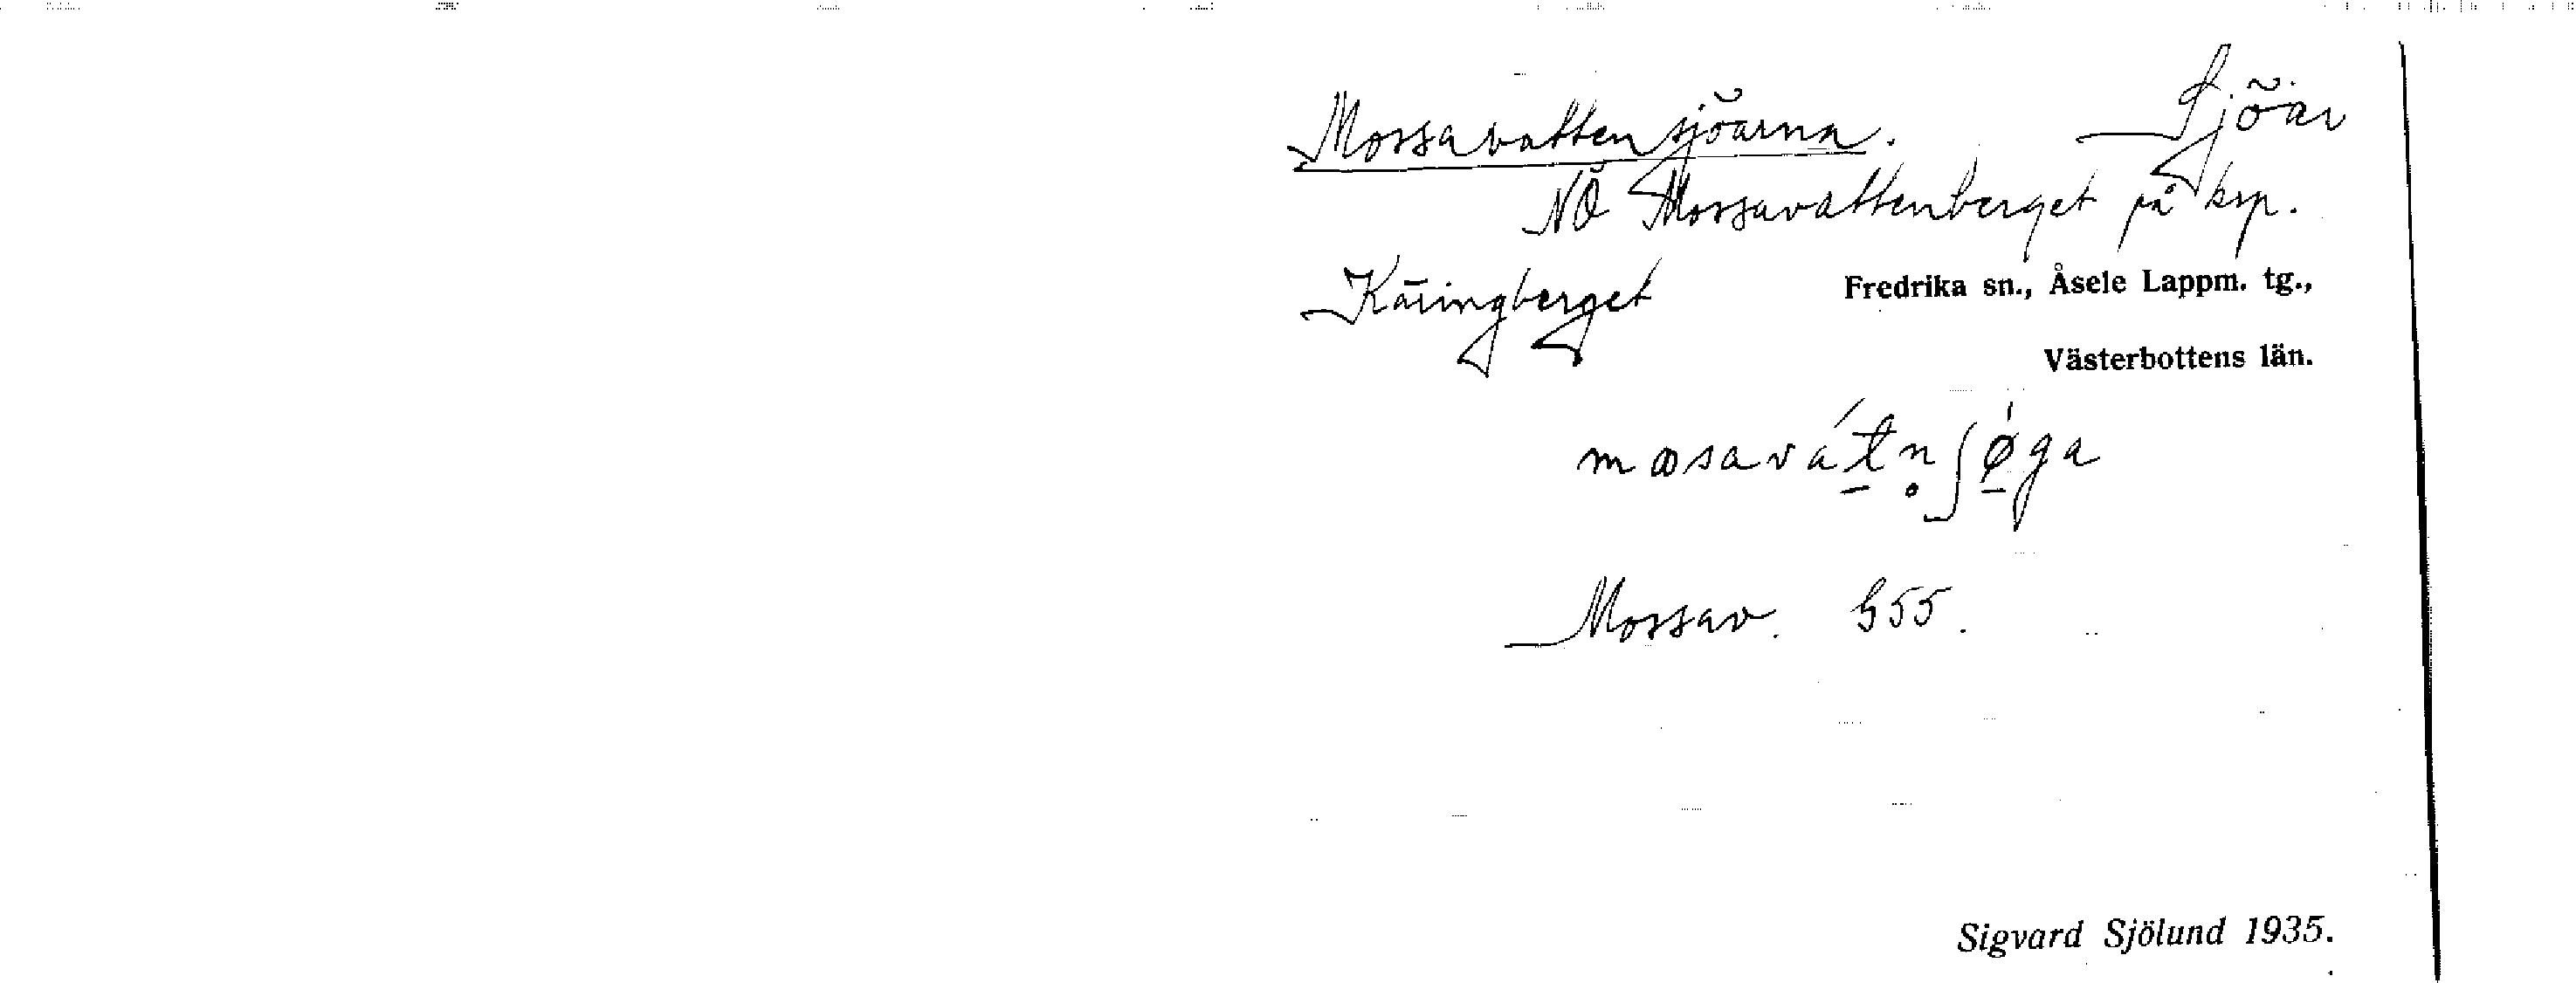 Mossavattensjöarna. Sjöar
NÖ Mossavattenberget på krp.
Käringberget Fredrika sn., Åsele Lappm. tg.,
Västerbottens län.
mɷsavátn̥ʃø̀ga
Mossav. G55.
Sigvard Sjölund 1935.